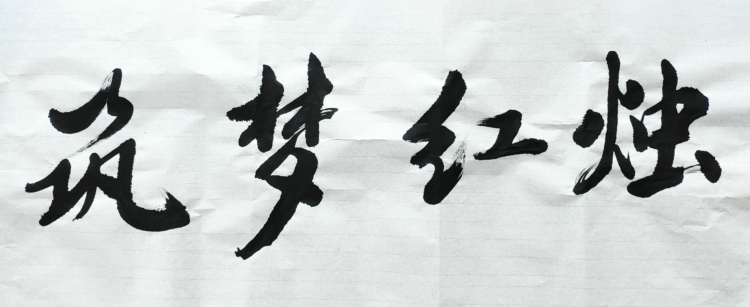 筑梦红烛